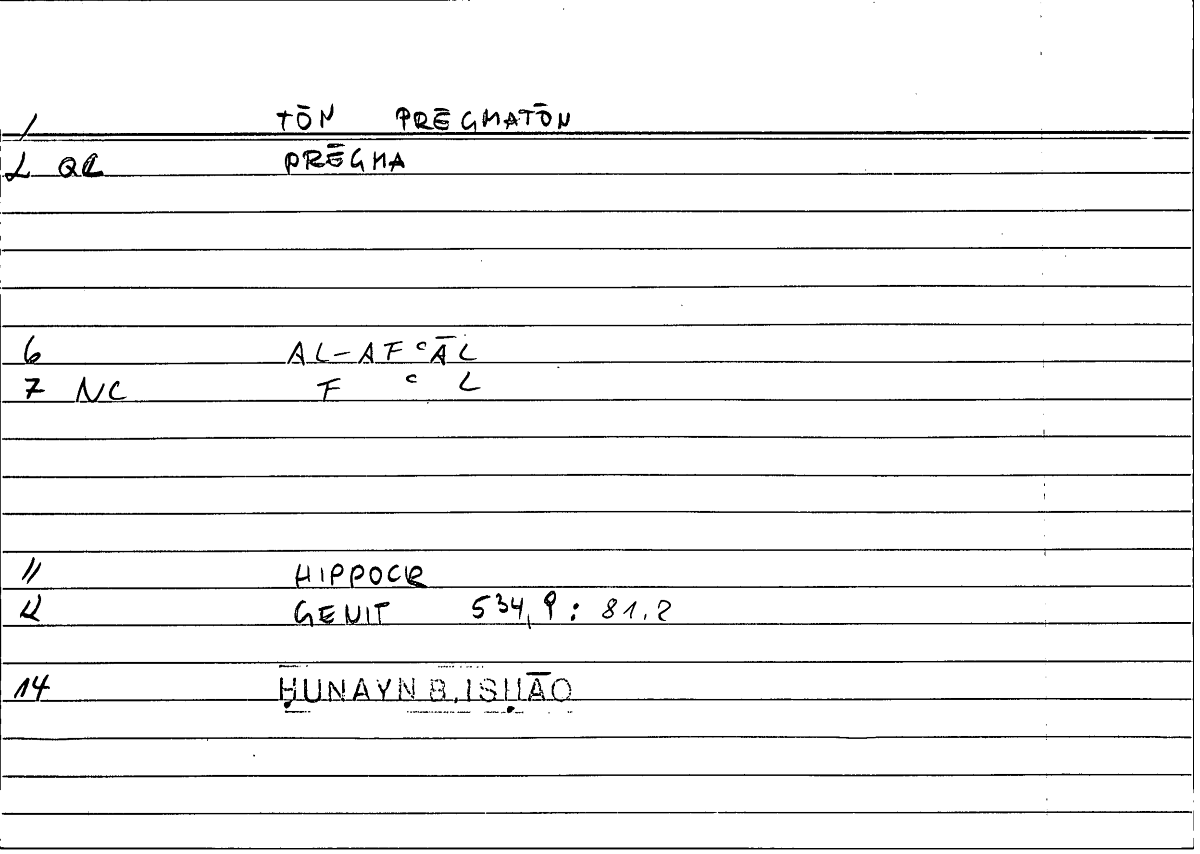 1 TŌN PRĒGMATŌN
2 QL PRĒGMA
6 AL-AFʿĀL
7 NC F ʿ L
11 HIPPOCR
12 GENIT 534,9: 81.2
14 ḤUNAYN B.ISḤĀQ